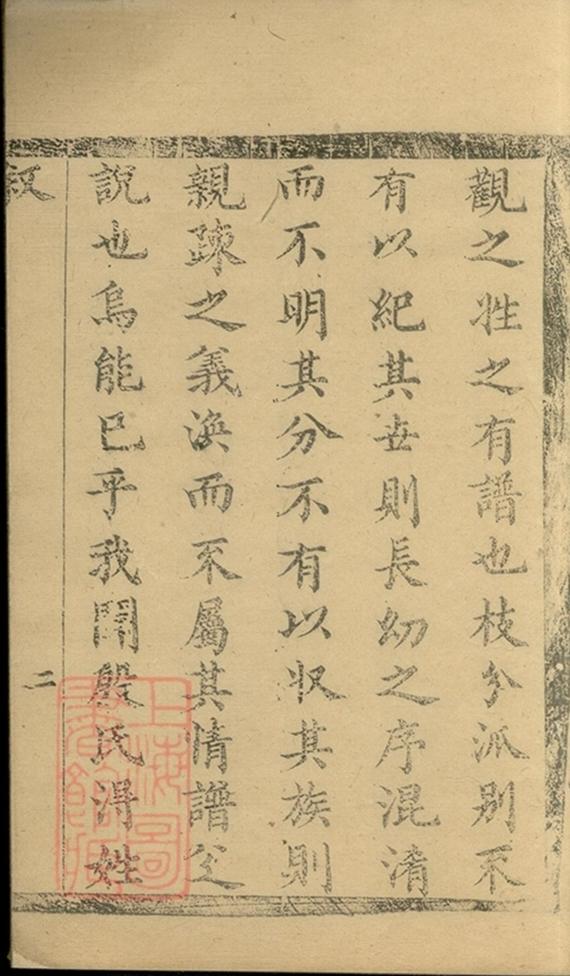 觀之姓之有譜也枝分派別不
有以紀其世則長幼之序混淆
而不明其分不有以收其族則
親踈之義渙而不屬其情譜之
說也烏能已乎我閈殷氏淂姓
叙
二
上海圖書館藏